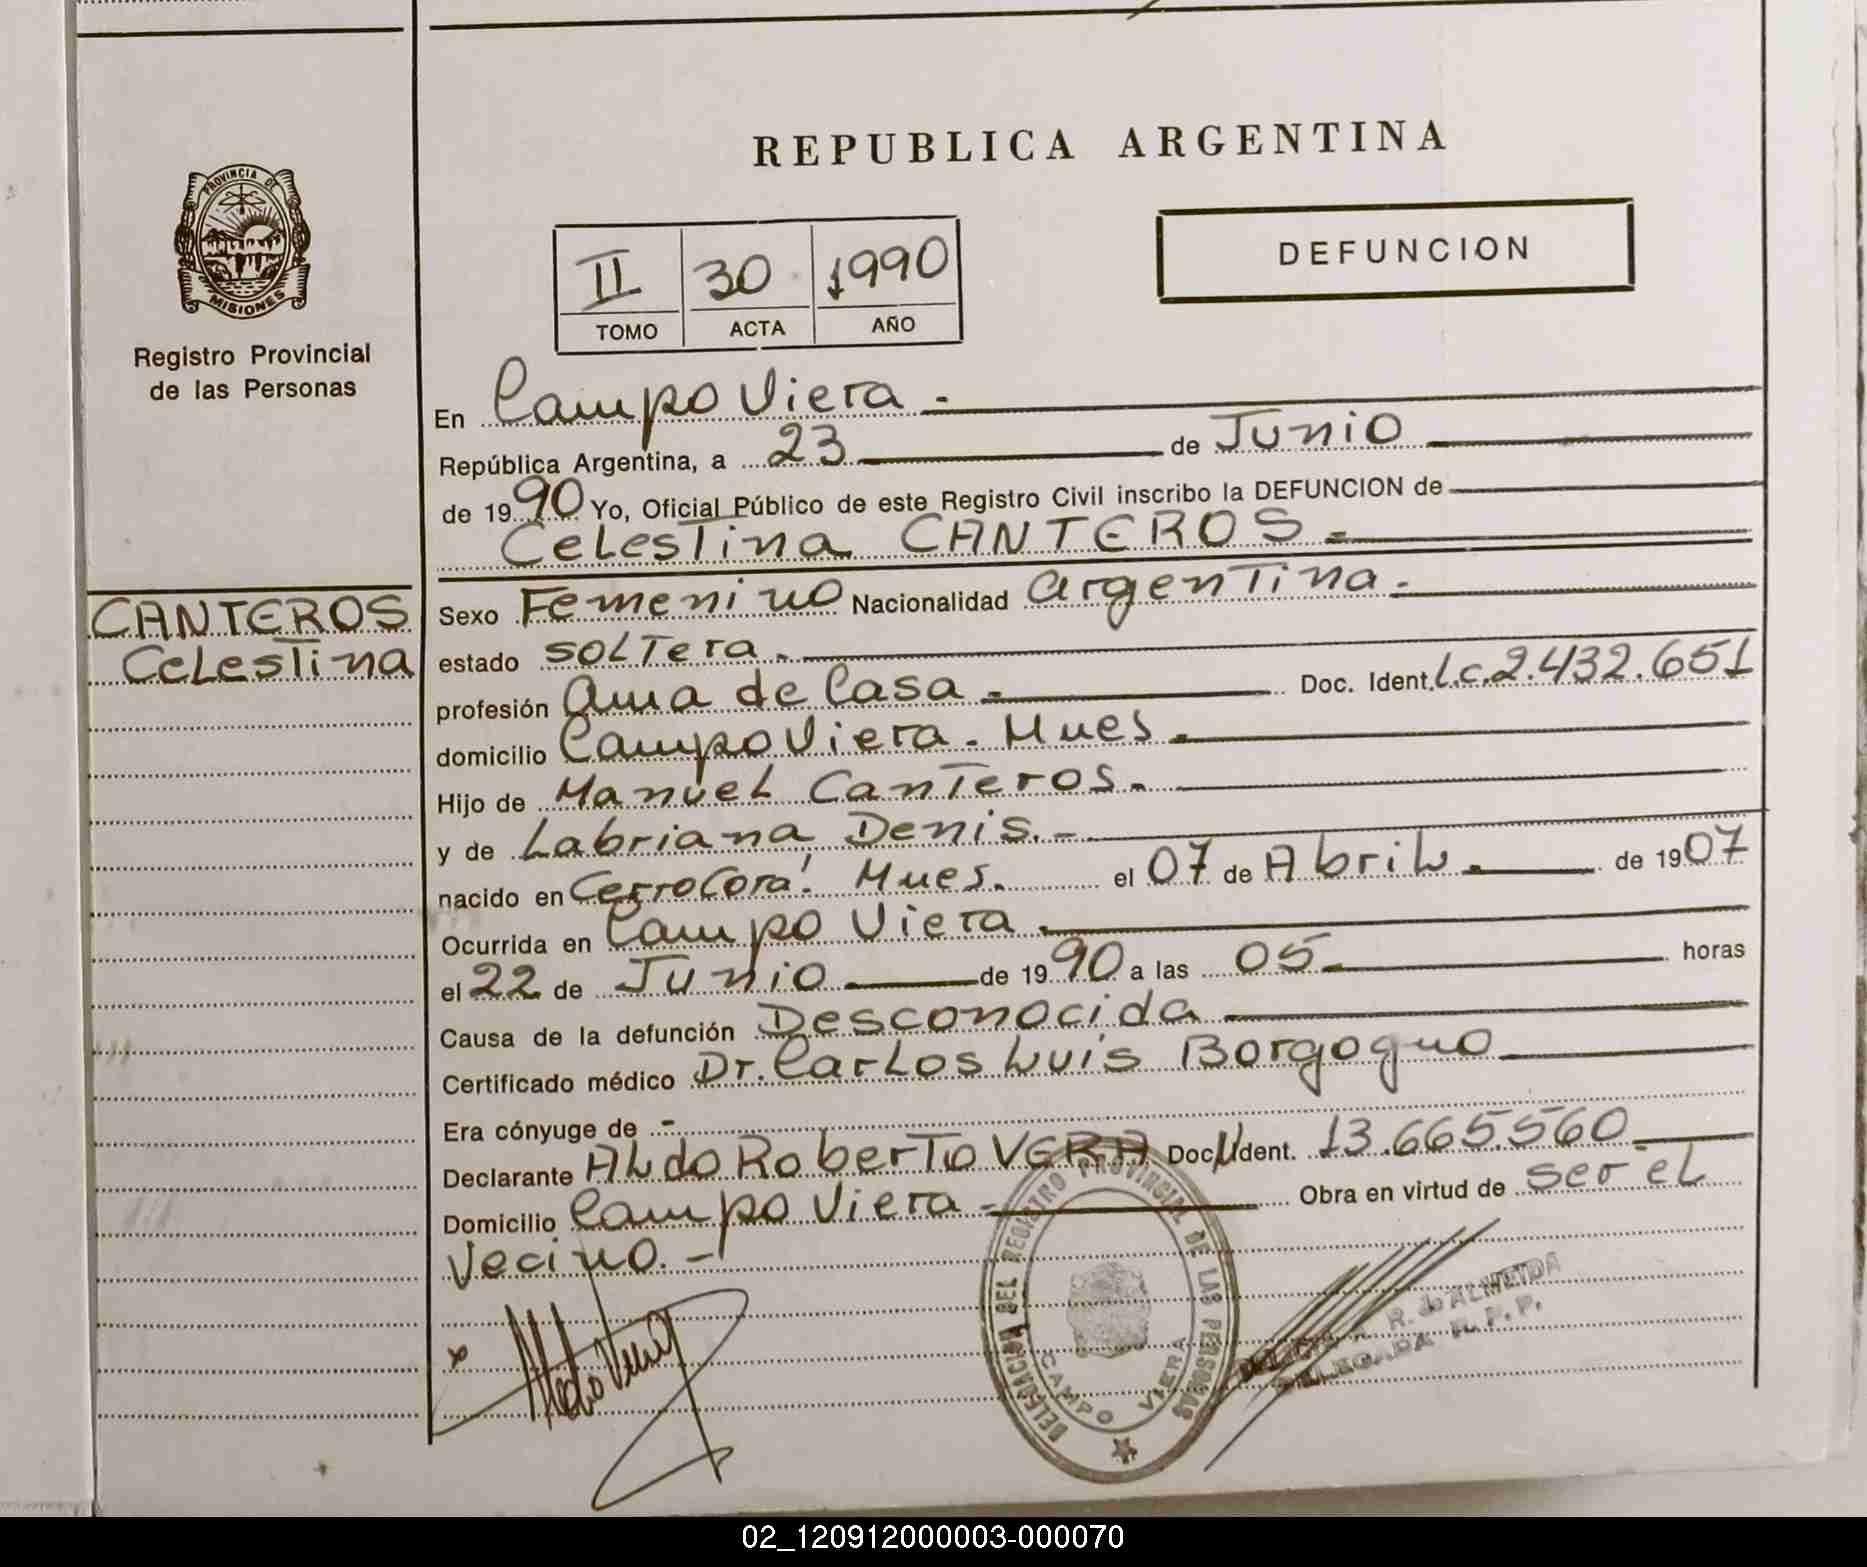 REPUBLICA ARGENTINA
PROVINCIA DE
MISIONES
Registro Provincial
de las Personas
DEFUNCION
II 30 1990
TOMO ACTA AÑO
En Campo Viera.-
República Argentina, a 23 de Junio
de 1990 Yo, Oficial Público de este Registro Civil inscribo la DEFUNCION de
Celestina CANTEROS.=
CANTEROS
Celestina
Sexo Femenino Nacionalidad argentina.-
estado soltera.-
profesión ama de Casa.- Doc. Ident. L.c.2.432.651
domicilio Campo Viera. Mnes.
Hijo de Manuel Canteros.-
y de Labriana Denis.-
nacido en Cerro Corá. Mnes. el 07 de Abril. de 1907
Ocurrida en Campo Viera.
el 22 de Junio de 1990 a las 05. horas
Causa de la defunción Desconocida
Certificado médico Dr. Carlos Luis Borgogno
Era cónyuge de -
Declarante Aldo Roberto VERA Doc. Ident. 13.665.560
Domicilio Campo Viera - Obra en virtud de ser el
Vecino.-
DELEGACION DEL REGISTRO PROVINCIAL DE LAS PERSONAS
CAMPO VIERA
R. de ALMEIDA
DELEGADA R. P. P.
02_120912000003-000070